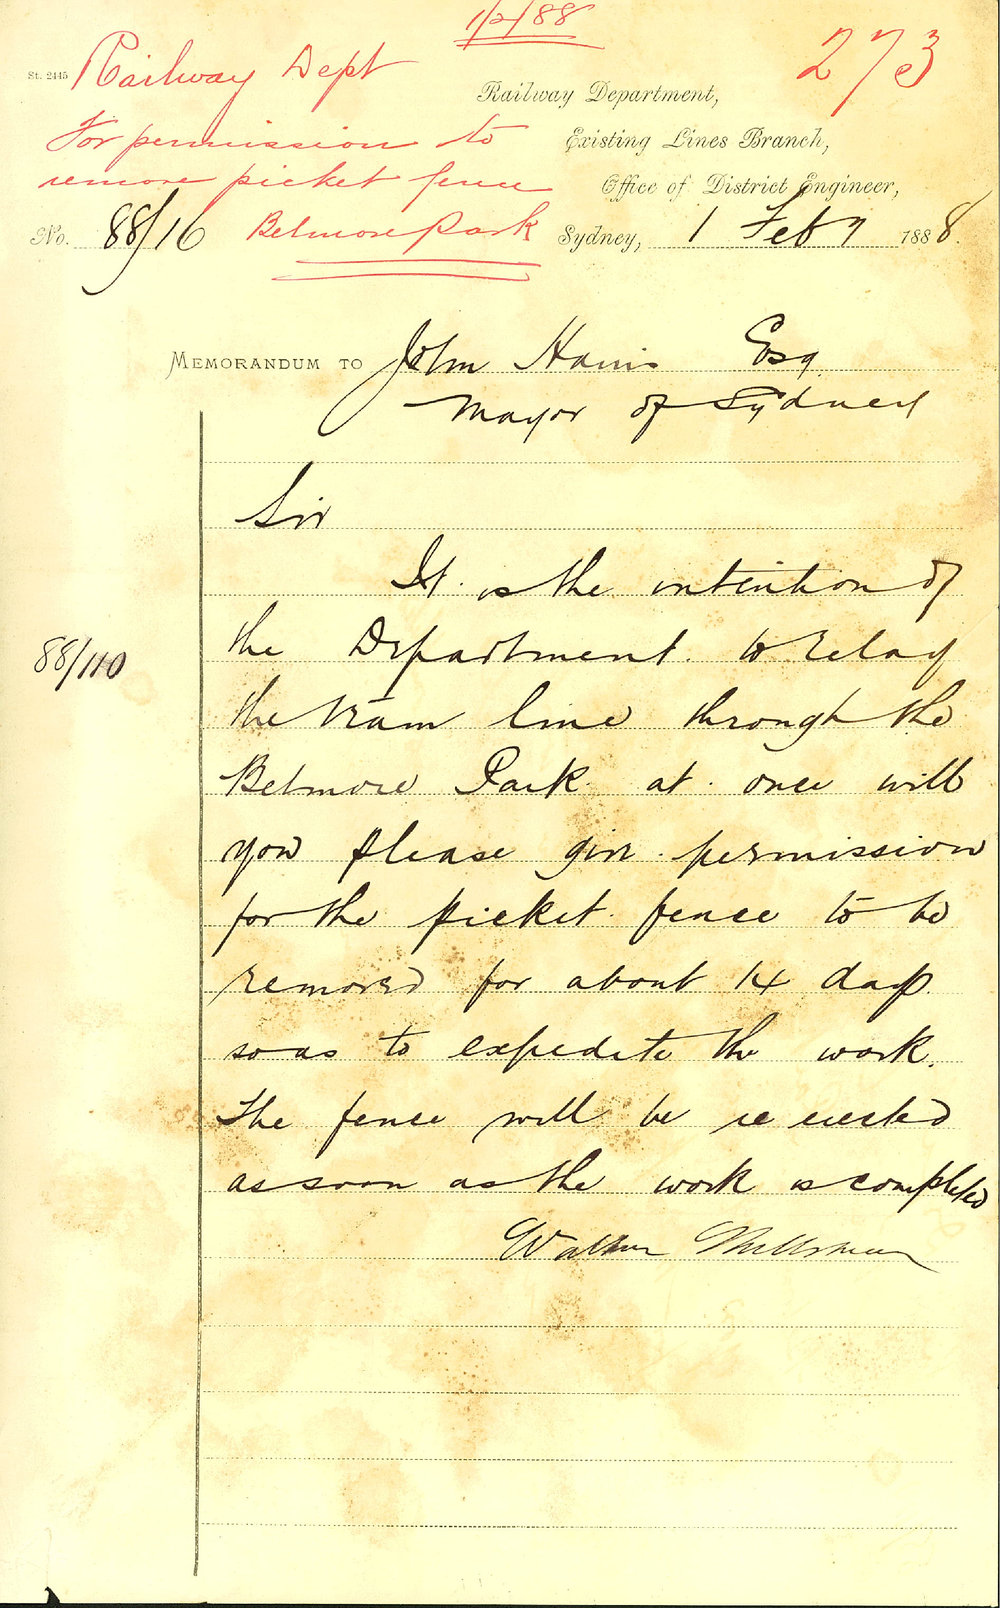 1/2/88
273
St. 2445
Railway Dept
For permission to
remove picket fence
Belmore Park
Railway Department,
Existing Lines Branch,
Office of District Engineer,
No. 88/16
Sydney, 1 Feby 1888.
MEMORANDUM TO John Harris Esq.
Mayor of Sydney
Sir
It is the intention of
88/110
the Department to relay
the tram line through the
Belmore Park at once will
you please give permission
for the picket fence to be
removed for about 14 days
so as to expedite the work.
The fence will be re erected
as soon as the work is completed